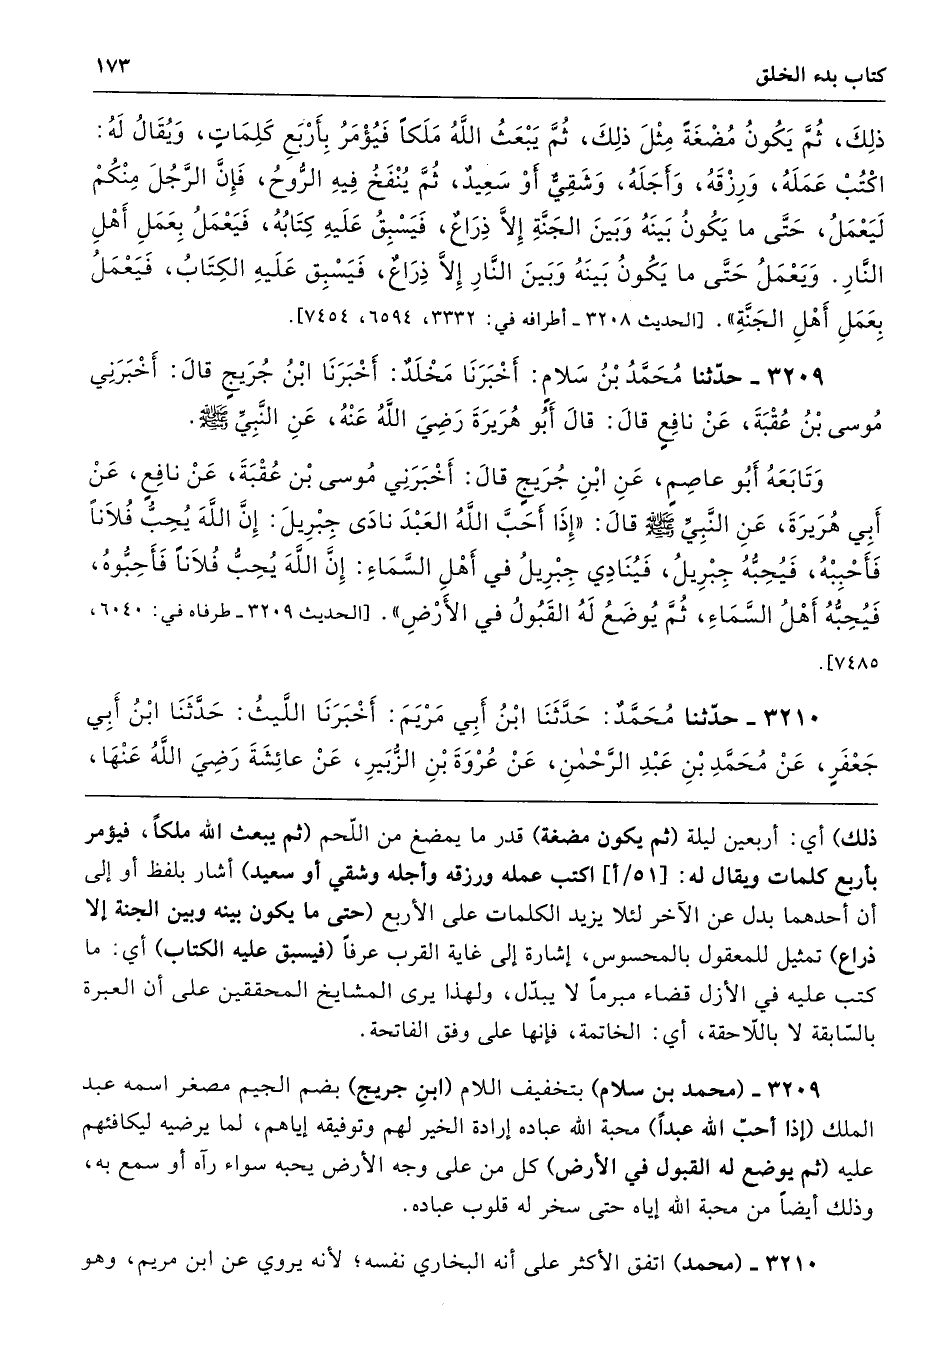 كتاب بدء الخلق ١٧٣
ذلِكَ، ثُمَّ يَكُونُ مُضْغَةً مِثْلَ ذلِكَ، ثُمَّ يَبْعَثُ اللَّهُ مَلَكاً فَيُؤْمَرُ بِأَرْبَعِ كَلِمَاتٍ، وَيُقَالُ لَهُ:
اكْتُبْ عَمَلَهُ، وَرِزْقَهُ، وَأَجَلَهُ، وَشَقِيٌّ أَوْ سَعِيدٌ، ثُمَّ يُنْفَخُ فِيهِ الرُّوحُ، فَإِنَّ الرَّجُلَ مِنْكُمْ
لَيَعْمَلُ، حَتَّى ما يَكُونُ بَيْنَهُ وَبَيْنَ الجَنَّةِ إِلاَّ ذِرَاعٌ، فَيَسْبِقُ عَلَيهِ كِتَابُهُ، فَيَعْمَلُ بِعَمَلِ أَهْلِ
النَّارِ. وَيَعْمَلُ حَتَّى ما يَكُونُ بَيْنَهُ وَبَيْنَ النَّارِ إِلاَّ ذِرَاعٌ، فَيَسْبِق عَلَيهِ الكِتَابُ، فَيَعْمَلُ
بِعَمَلِ أَهْلِ الجَنَّةِ». [الحديث ٣٢٠٨ ـ أطرافه في: ٣٣٣٢، ٦٥٩٤، ٧٤٥٤].
٣٢٠٩ ـ حدّثنا مُحَمَّدُ بْنُ سَلَامٍ: أَخْبَرَنَا مَخْلَدٌ: أَخْبَرَنَا ابْنُ جُرَيجٍ قالَ: أَخْبَرَنِي
مُوسى بْنُ عُقْبَةَ، عَنْ نافِعٍ قالَ: قالَ أَبُو هُرَيرَةَ رَضِيَ اللَّهُ عَنْهُ، عَنِ النَّبِيِّ ﷺ.
وَتَابَعَهُ أَبُو عاصِمٍ، عَنِ ابْنِ جُرَيجٍ قالَ: أَخْبَرَنِي مُوسى بْن عُقْبَةَ، عَنْ نافِعٍ، عَنْ
أَبِي هُرَيرَةَ، عَنِ النَّبِيِّ ﷺ قالَ: «إِذَا أَحَبَّ اللَّهُ العَبْدَ نادَى جِبْرِيلَ: إِنَّ اللَّهَ يُحِبُّ فُلَاناً
فَأَحْبِبْهُ، فَيُحِبُّهُ جِبْرِيلُ، فَيُنَادِي جِبْرِيلُ في أَهْلِ السَّمَاءِ: إِنَّ اللَّهَ يُحِبُّ فُلَاناً فَأَحِبُّوهُ،
فَيُحِبُّهُ أَهْلُ السَّمَاءِ، ثُمَّ يُوضَعُ لَهُ القَبُولُ في الأَرْضِ». [الحديث ٣٢٠٩ ـ طرفاه في: ٦٠٤٠،
٧٤٨٥].
٣٢١٠ ـ حدّثنا مُحَمَّدٌ: حَدَّثَنَا ابْنُ أَبِي مَرْيَمَ: أَخْبَرَنَا اللَّيثُ: حَدَّثَنَا ابْنُ أَبِي
جَعْفَرٍ، عَنْ مُحَمَّدِ بْنِ عَبْدِ الرَّحْمٰنِ، عَنْ عُرْوَةَ بْنِ الزُّبَيرِ، عَنْ عائِشَةَ رَضِيَ اللَّهُ عَنْهَا،
ذلك) أي: أربعين ليلة (ثم يكون مضغة) قدر ما يمضغ من اللّحم (ثم يبعث الله ملكاً، فيؤمر
بأربع كلمات ويقال له: [٥١/أ] اكتب عمله ورزقه وأجله وشقي أو سعيد) أشار بلفظ أو إلى
أن أحدهما بدل عن الآخر لئلا يزيد الكلمات على الأربع (حتى ما يكون بينه وبين الجنة إلا
ذراع) تمثيل للمعقول بالمحسوس، إشارة إلى غاية القرب عرفاً (فيسبق عليه الكتاب) أي: ما
كتب عليه في الأزل قضاء مبرماً لا يبدّل، ولهذا يرى المشايخ المحققين على أن العبرة
بالسّابقة لا باللّاحقة، أي: الخاتمة، فإنها على وفق الفاتحة.
٣٢٠٩ ـ (محمد بن سلام) بتخفيف اللام (ابنِ جريج) بضم الجيم مصغر اسمه عبد
الملك (إذا أحبّ الله عبداً) محبة الله عباده إرادة الخير لهم وتوفيقه إياهم، لما يرضيه ليكافئهم
عليه (ثم يوضع له القبول في الأرض) كل من على وجه الأرض يحبه سواء رآه أو سمع به،
وذلك أيضاً من محبة الله إياه حتى سخر له قلوب عباده.
٣٢١٠ ـ (محمد) اتفق الأكثر على أنه البخاري نفسه؛ لأنه يروي عن ابن مريم، وهو